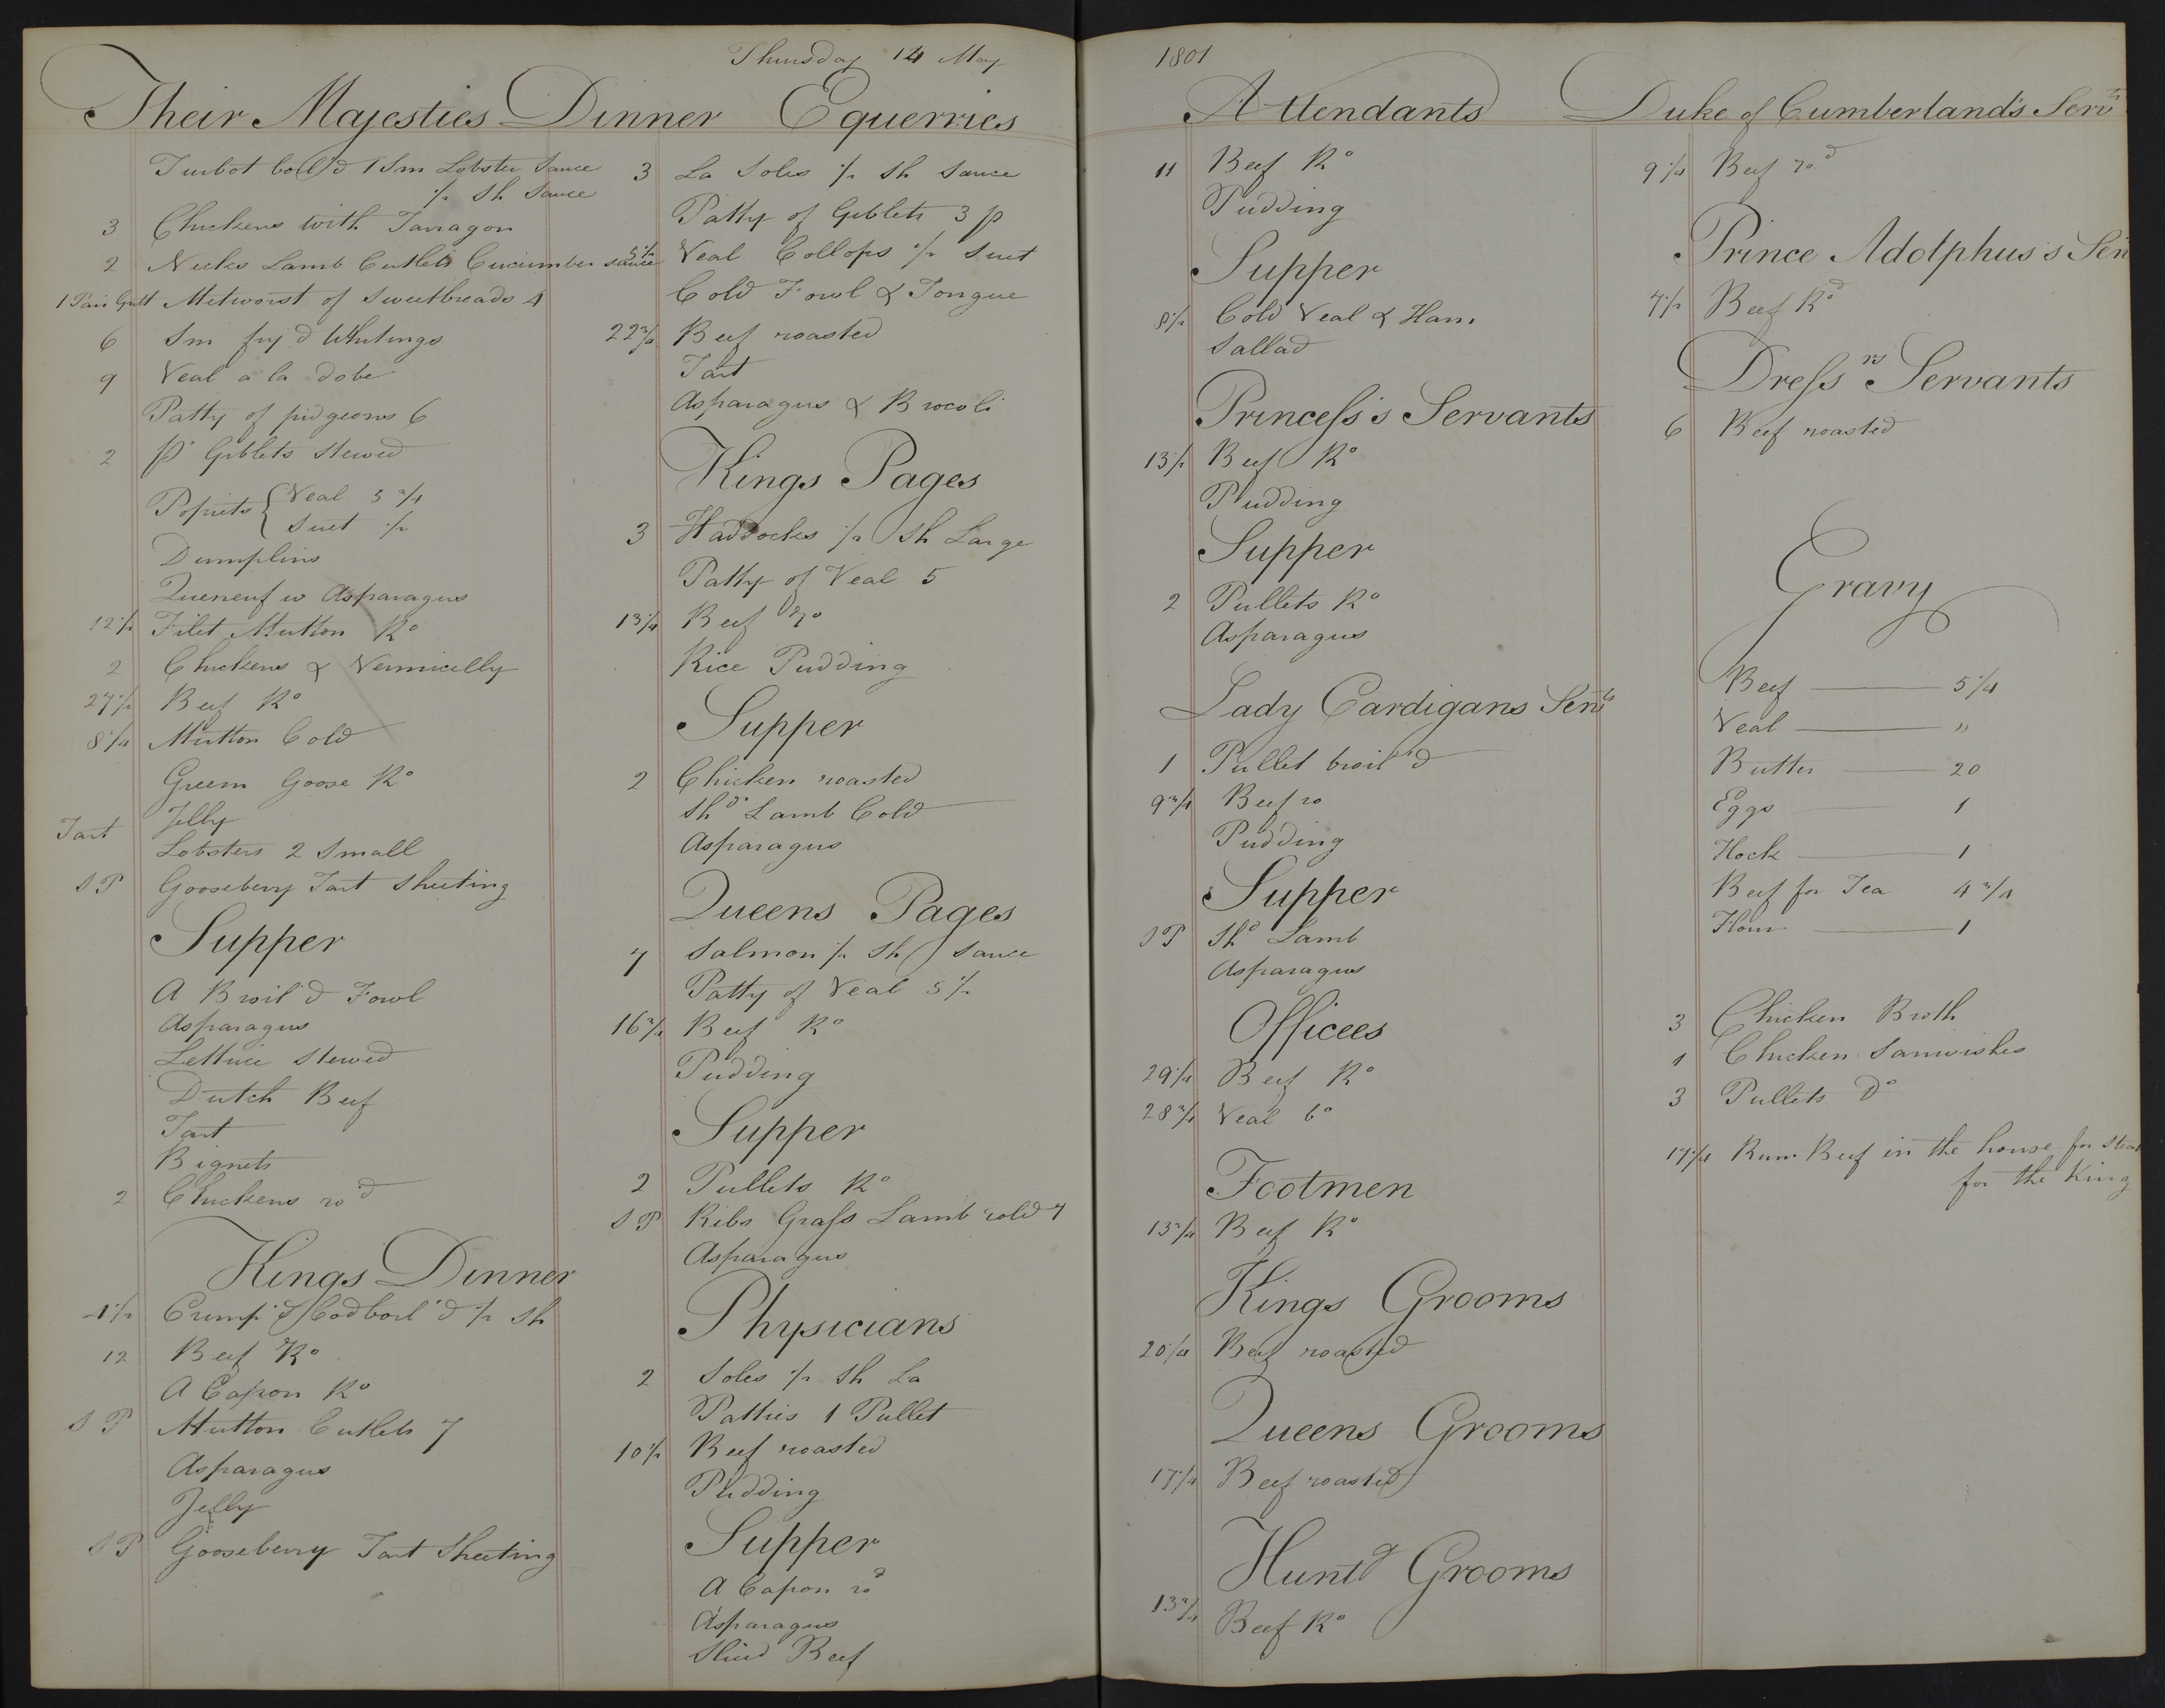 Thursday 14 May
Their Majesties Dinner
Turbot boil'd 1 Sm Lobster Sauce
1/2 Sh Sauce
3 Chickens with Tarragon
2 Necks Lamb Cutlets Cucumber sauce
1 Pair Gullt Metworst of Sweetbreads 4
6 Sm fry'd Whitings
9 Veal a la dobe
Patty of pidgeons 6
2 p Giblets Stewed
Popiets { Veal 5 3/4
Suet 1/2
Dumplins
Queneuf w Asparagus
12 1/2 Filet Mutton Ro
2 Chickens & Vermicelly
27 1/2 Beef Ro
8 1/4 Mutton Cold
Green Goose Ro
Jelly
Tart Lobsters 2 Small
S P Gooseberry Tart Sheeting
Supper
A Broil'd Fowl
Asparagus
Lettuce Stewed
Dutch Beef
Tart
Bignets
2 Chickens rod
Kings Dinner
4 1/2 Crimp'd Cod boil'd 1/2 Sh
12 Beef Ro
A Capon Ro
S P Mutton Cutlets 7
Asparagus
Jelly
S P Gooseberry Tart Sheeting
Equerries
3 La Soles 1/2 Sh Sauce
Patty of Giblets 3 p
5 1/2 Veal Collops 1/2 Suet
Cold Fowl & Tongue
22 3/4 Beef roasted
Tart
Asparagus & Brocoli
Kings Pages
3 Haddocks 1/2 Sh Large
Patty of Veal 5
13 1/4 Beef Ro
Rice Pudding
Supper
2 Chicken roasted
Shd Lamb Cold
Asparagus
Queens Pages
7 Salmon 1/2 Sh Sauce
Patty of Veal 5 1/2
16 3/4 Beef Ro
Pudding
Supper
2 Pullets Ro
S P Ribs Grass Lamb cold 7
Asparagus
Physicians
2 Soles 1/2 Sh La
Patties 1 Pullet
10 1/2 Beef roasted
Pudding
Supper
A Capon rod
Asparagus
Slic'd Beef
1801
Attendants
11 Beef Ro
Pudding
Supper
8 1/2 Cold Veal & Ham
Sallad
Princess's Servants
13 1/2 Beef Ro
Pudding
Supper
2 Pullets Ro
Asparagus
Lady Cardigans Servts
1 Pullet broil'd
9 3/4 Beef ro
Pudding
Supper
S P Shd Lamb
Asparagus
Officees
29 1/4 Beef Ro
28 3/4 Veal bo
Footmen
13 3/4 Beef Ro
Kings Grooms
20 1/4 Beef roasted
Queens Grooms
17 1/4 Beef roasted
Huntg Grooms
13 3/4 Beef Ro
Duke of Cumberland's Servts
9 1/4 Beef rod
Prince Adolphus's Ser
7 1/2 Beef Rod
Dressrs Servants
6 Beef roasted
Gravy
Beef — 5 1/4
Veal — "
Butter — 20
Eggs — 1
Hock — 1
Beef for Tea 4 3/4
Flour — 1
3 Chicken Broth
1 Chicken Sanwishes
3 Pullets Do
17 1/4 Rum Beef in the house for
for the King